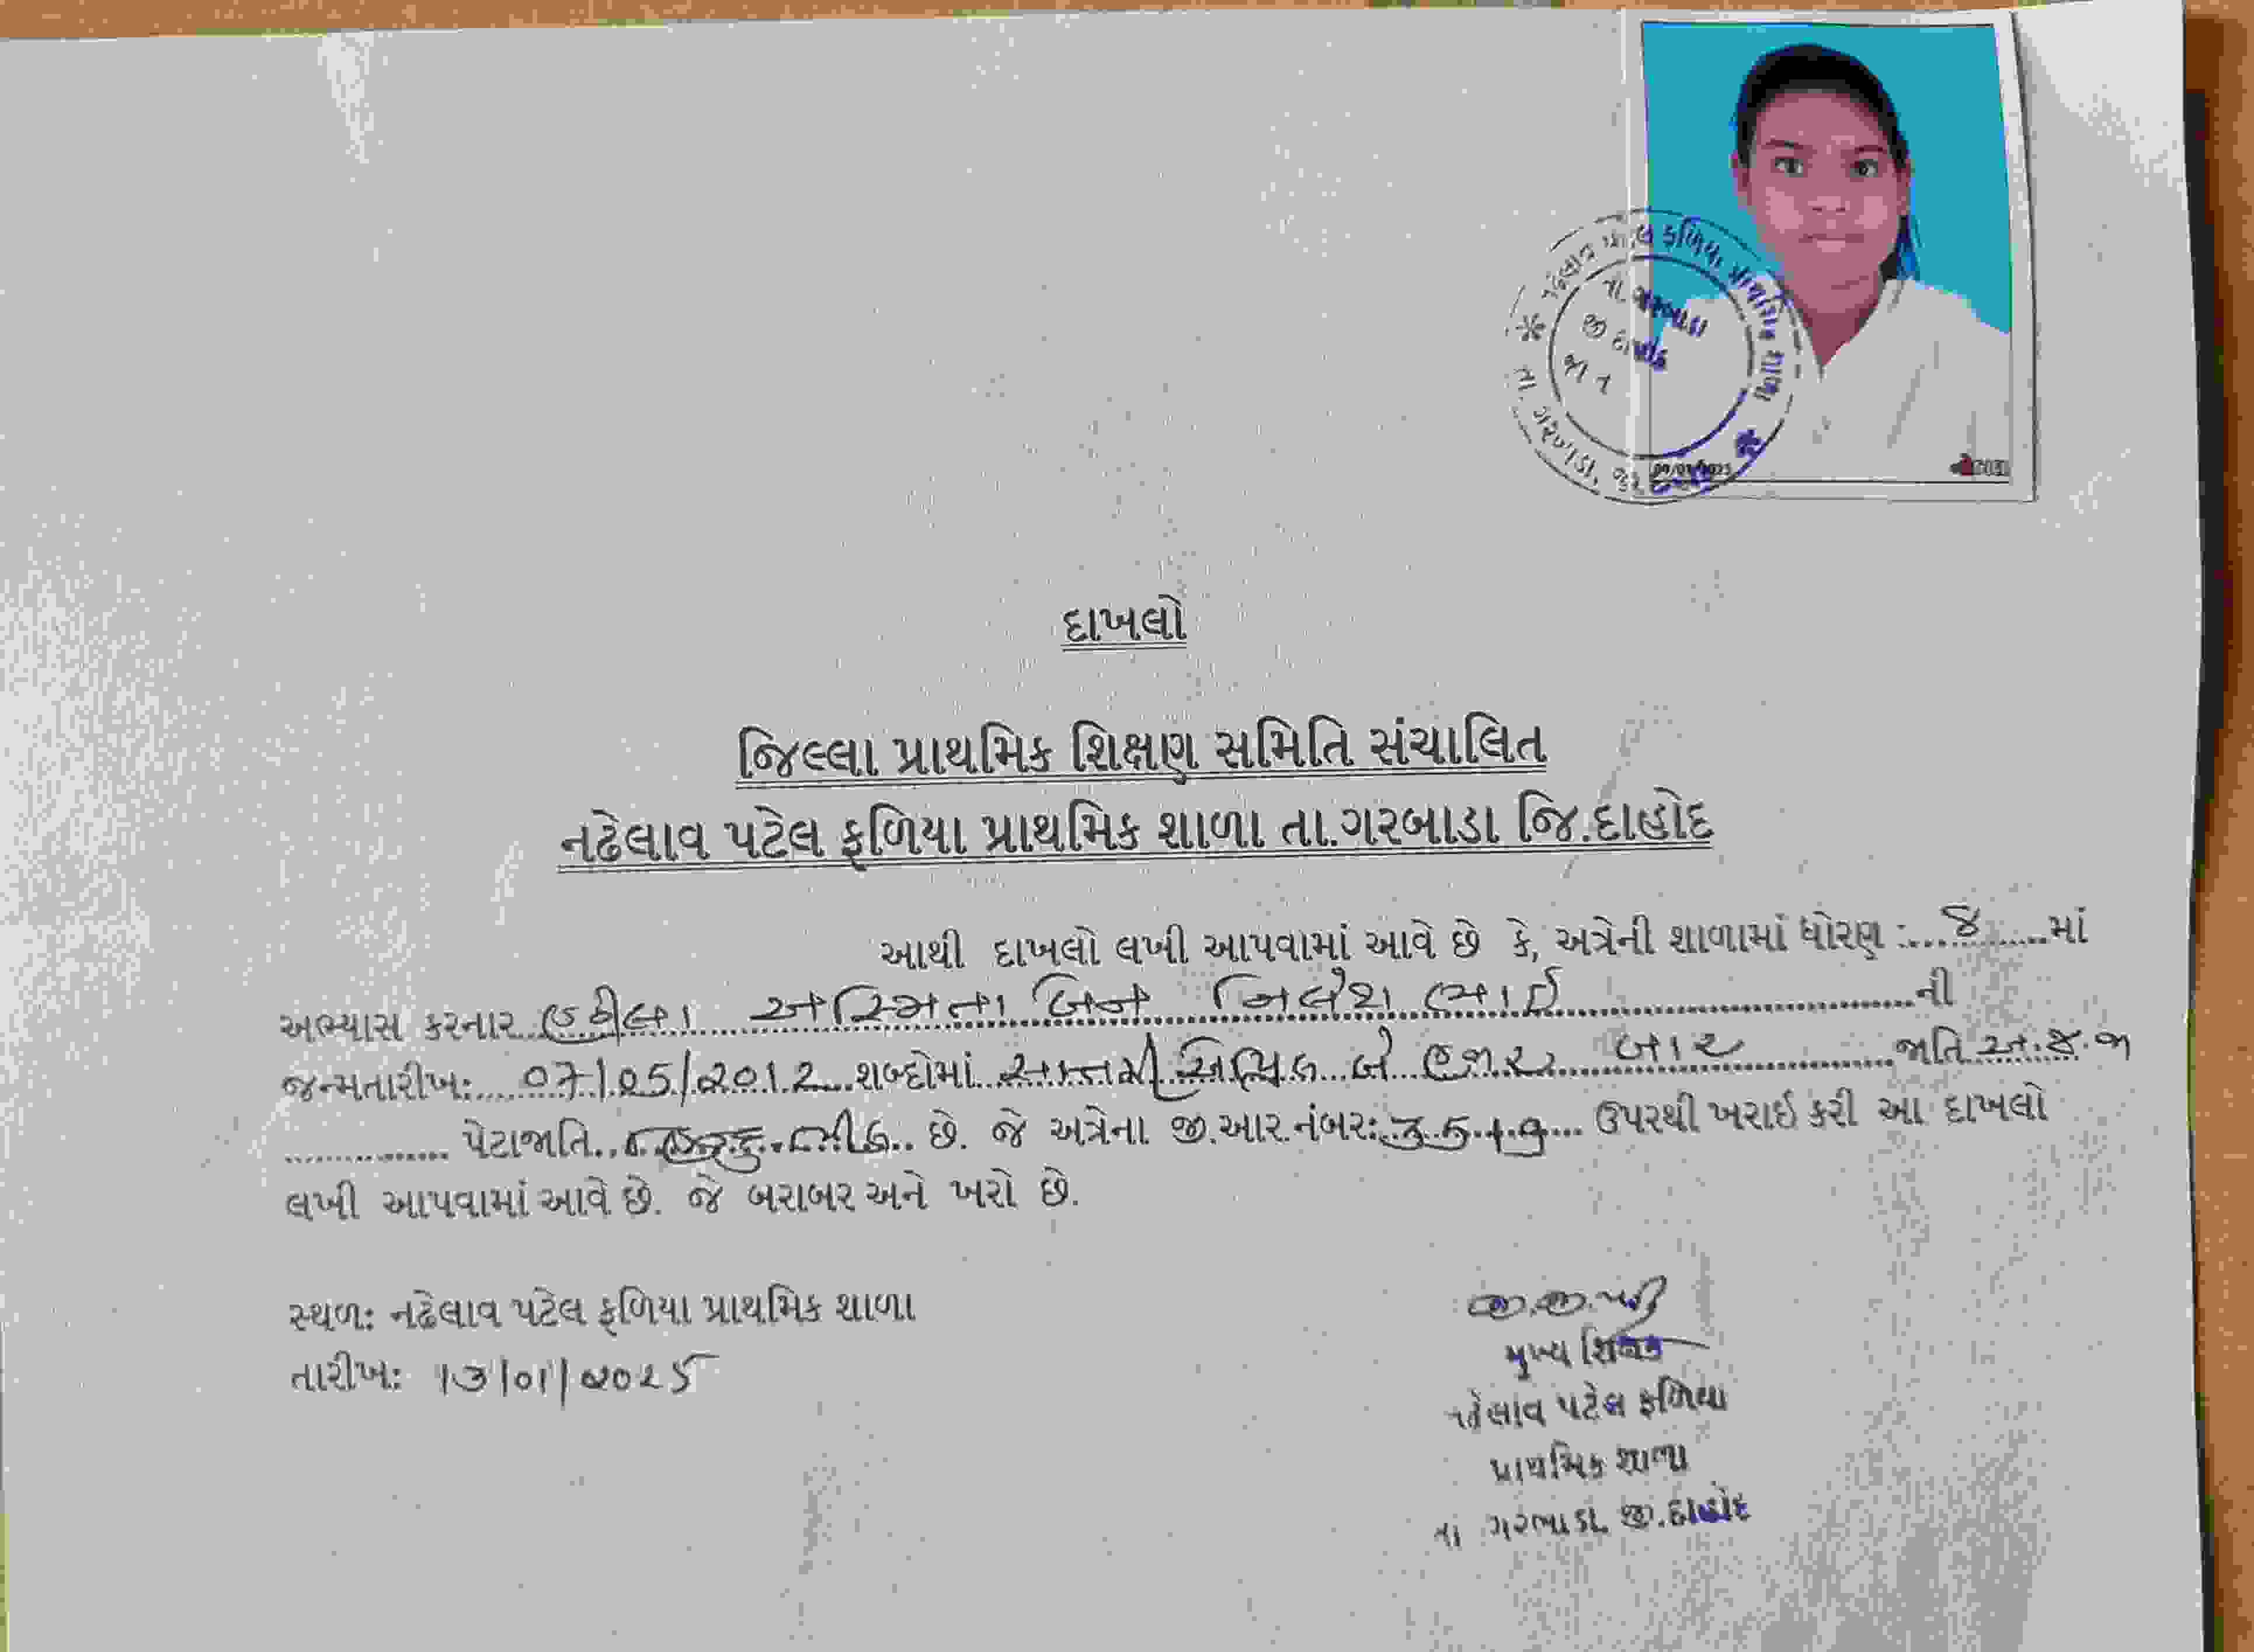 દાખલો
જિલ્લા પ્રાથમિક શિક્ષણ સમિતિ સંચાલિત
નઢેલાવ પટેલ ફળિયા પ્રાથમિક શાળા તા.ગરબાડા જિ.દાહોદ
આથી દાખલો લખી આપવામાં આવે છે કે, અત્રેની શાળામાં ધોરણ :....૪......માં
અભ્યાસ કરનાર હઠીલા અસ્મિતા બેન નિલેશ ભાઈ..................ની
જન્મતારીખ:......07/05/2012...શબ્દોમાં...સાતમી એપ્રિલ બે હજાર બાર............જાતિ અ.જ.જા
.............. પેટાજાતિ..હિન્દુ ભીલ.. છે. જે અત્રેના જી.આર.નંબર: 3519.... ઉપરથી ખરાઈ કરી આ દાખલો
લખી આપવામાં આવે છે. જે બરાબર અને ખરો છે.
સ્થળ: નઢેલાવ પટેલ ફળિયા પ્રાથમિક શાળા
તારીખ: 13/01/2025
મુખ્ય શિક્ષક
નઢેલાવ પટેલ ફળિયા
પ્રાથમિક શાળા
તા ગરબાડા જી.દાહોદ